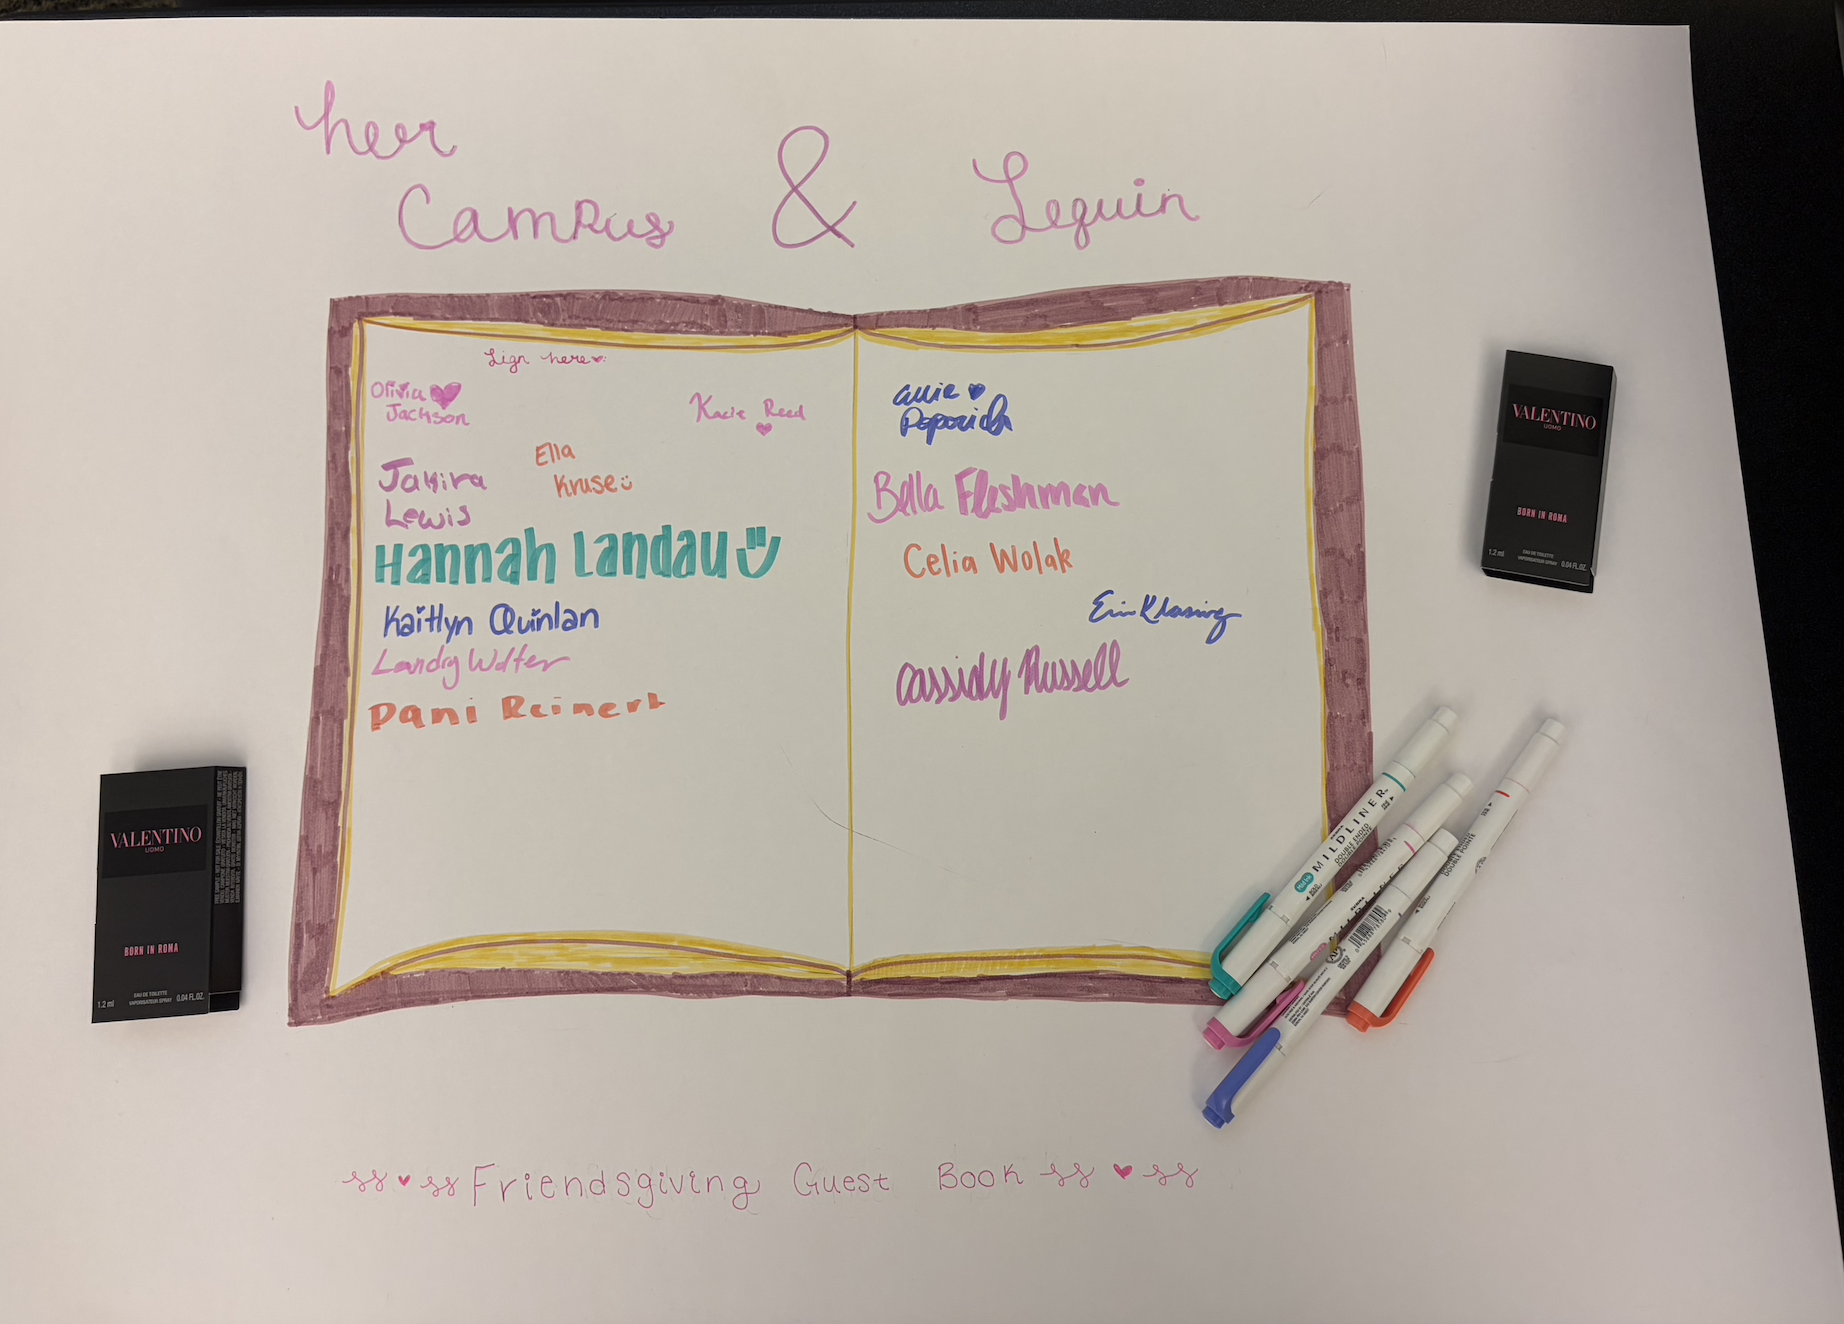 her
Campus & Lequin
Sign here
Olivia
Jackson
Kacie Reed
Ella
Kruse
Jakira
Lewis
Hannah Landau
Kaitlyn Quinlan
Landry Wolter
Dani Reinert
allie
Bella Fleshman
Celia Wolak
Erin Klasing
Cassidy Russell
VALENTINO
UOMO
BORN IN ROMA
1.2 ml
EAU DE TOILETTE
VAPORISATEUR SPRAY
0.04 FL.OZ.
VALENTINO
UOMO
BORN IN ROMA
1.2 ml
EAU DE TOILETTE
VAPORISATEUR SPRAY
0.04 FL.OZ.
ZEBRA
MILDLINER
DOUBLE ENDED
DOUBLE POINTE
Friendsgiving Guest Book